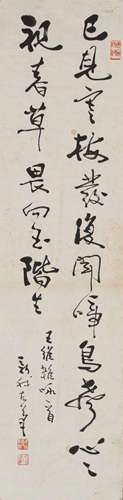 已見寒梅發復聞啼鳥聲心〻
視春草畏向玉階生
王維雜咏一首